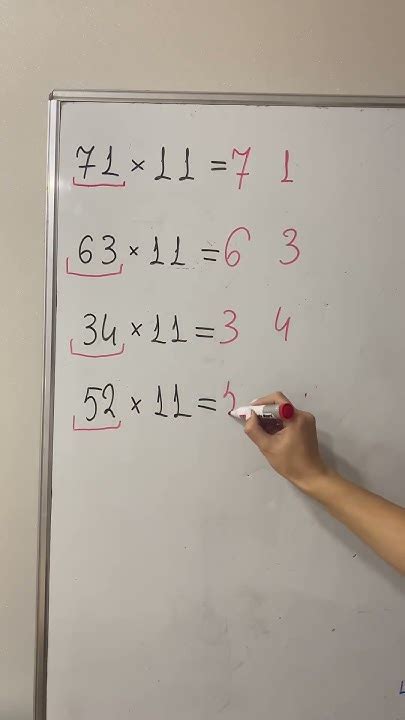 71 × 11 = 7 1
63 × 11 = 6 3
34 × 11 = 3 4
52 × 11 =